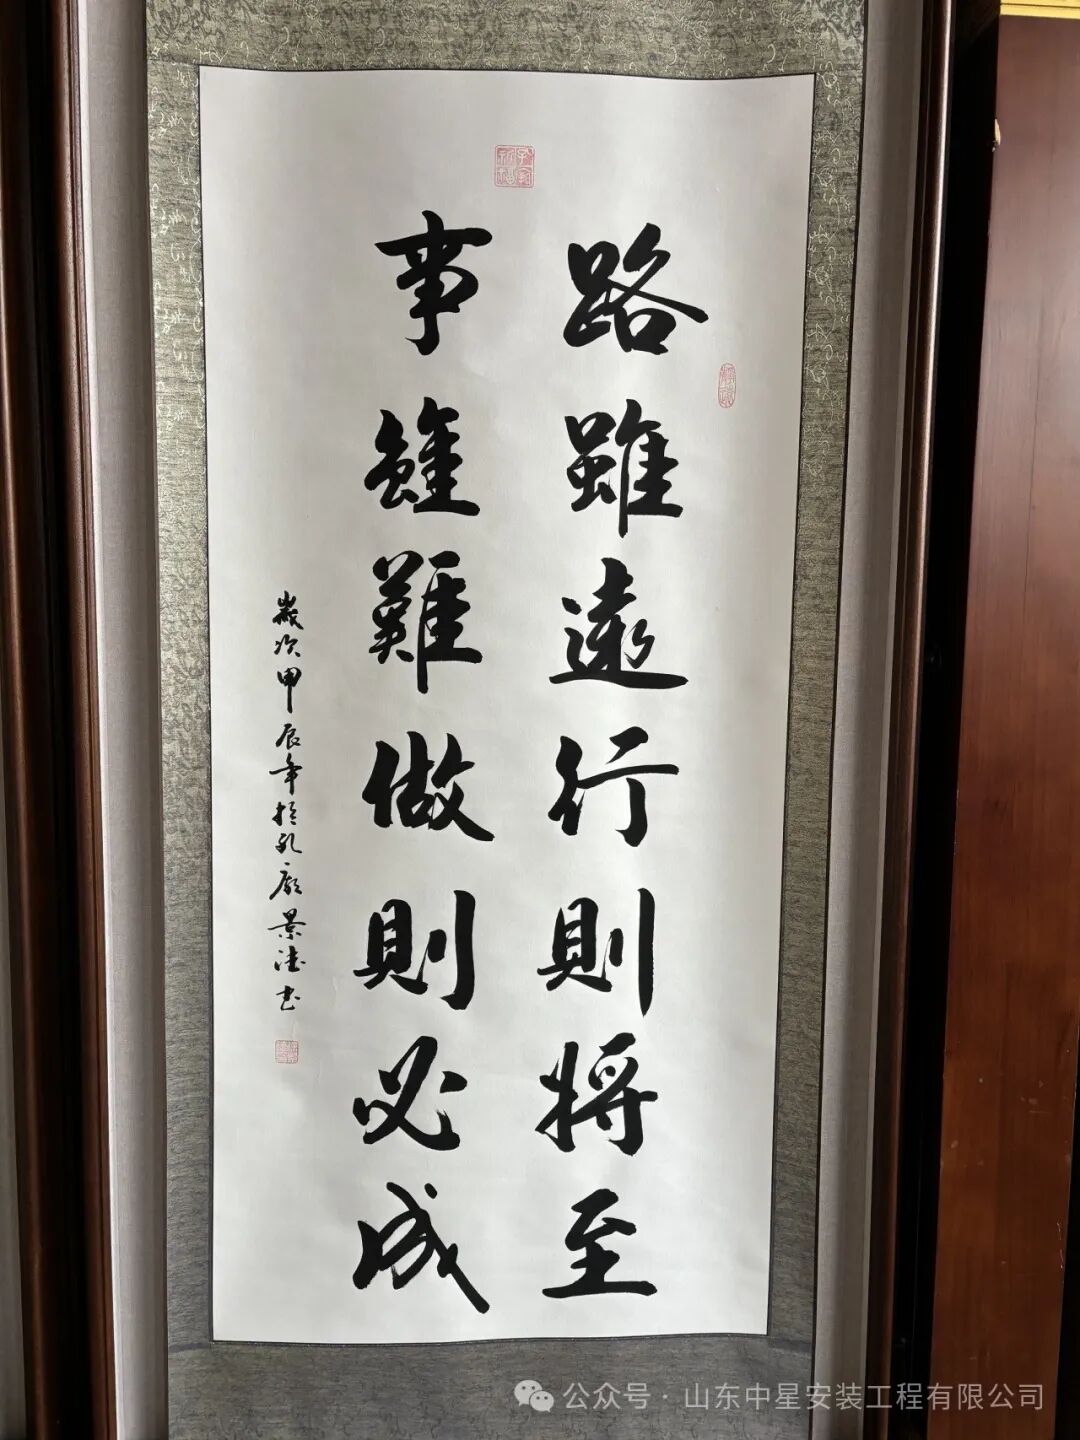 路雖遠行則將至
事雖難做則必成
歲次甲辰年於孔廟景法書
公众号·山东中星安装工程有限公司